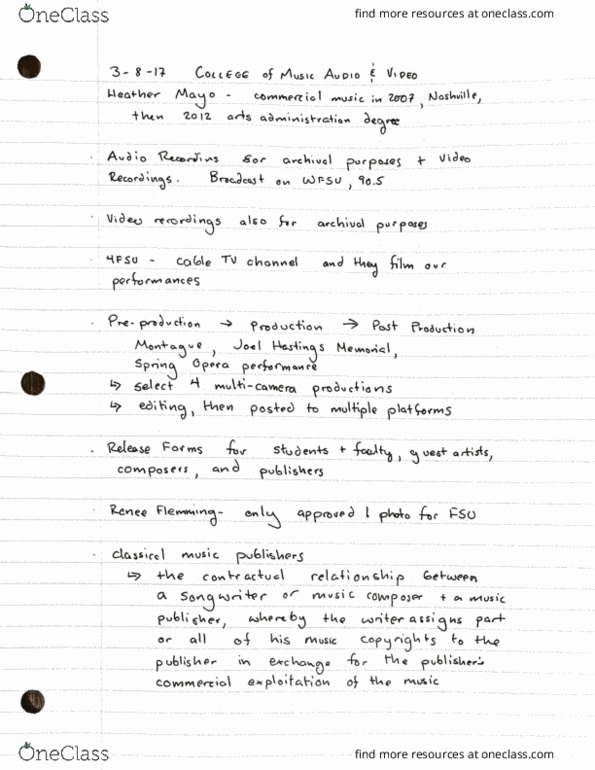 OneClass
find more resources at oneclass.com
3-8-17 College of Music Audio & Video
Heather Mayo - commercial music in 2007, Nashville,
then 2012 arts administration degree
· Audio Recordins for archival purposes + Video
Recordings. Broadcast on WFSU, 90.5
· Video recordings also for archival purposes
· 4FSU - cable TV channel and they film our
performances
· Pre-production → Production → Post Production
Montague, Joel Hastings Memorial,
Spring Opera performance
↳ select 4 multi-camera productions
↳ editing, then posted to multiple platforms
· Release Forms for students + faculty, guest artists,
composers, and publishers
Renee Flemming - only approved 1 photo for FSU
· classical music publishers
↳ the contractual relationship between
a songwriter or music composer + a music
publisher, whereby the writer assigns part
or all of his music copyrights to the
publisher in exchange for the publisher's
commercial exploitation of the music
OneClass
find more resources at oneclass.com